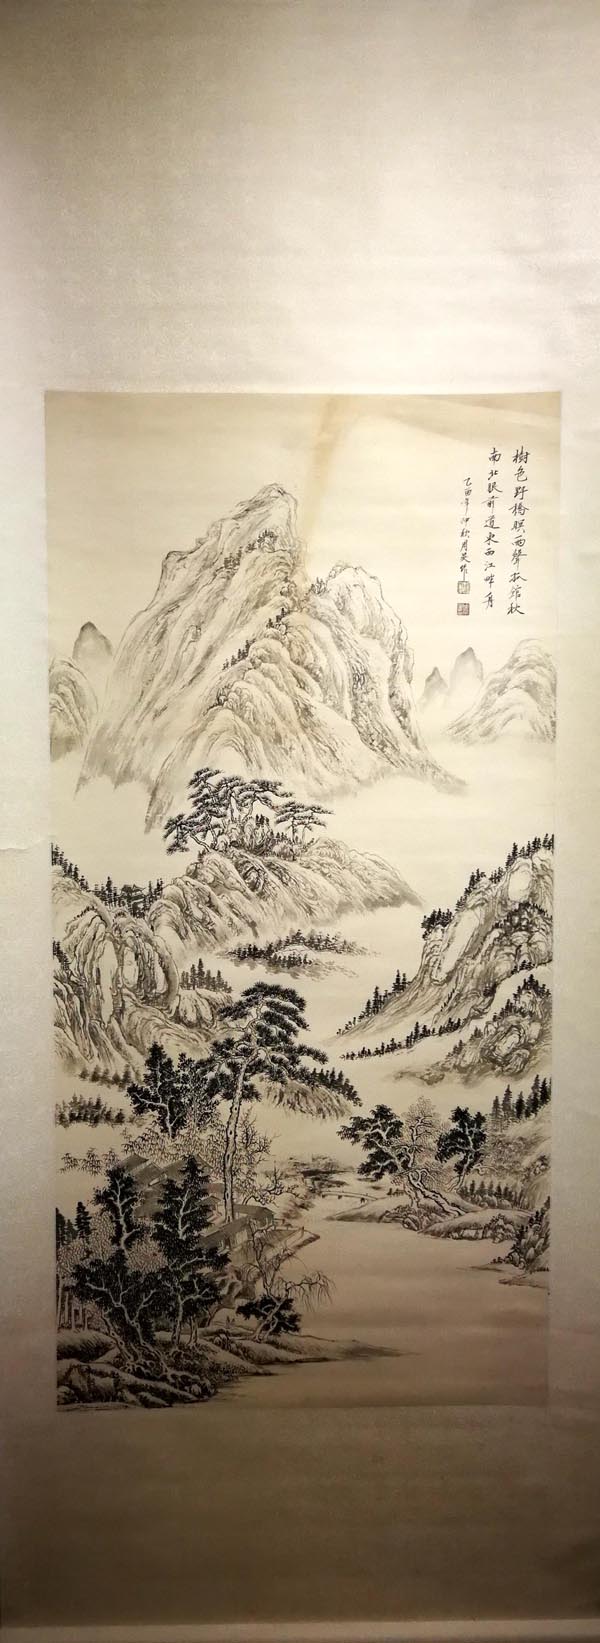 樹色野橋暝雨聲孤館秋
南北眼前道東西江畔舟
乙酉年仲秋月吴作